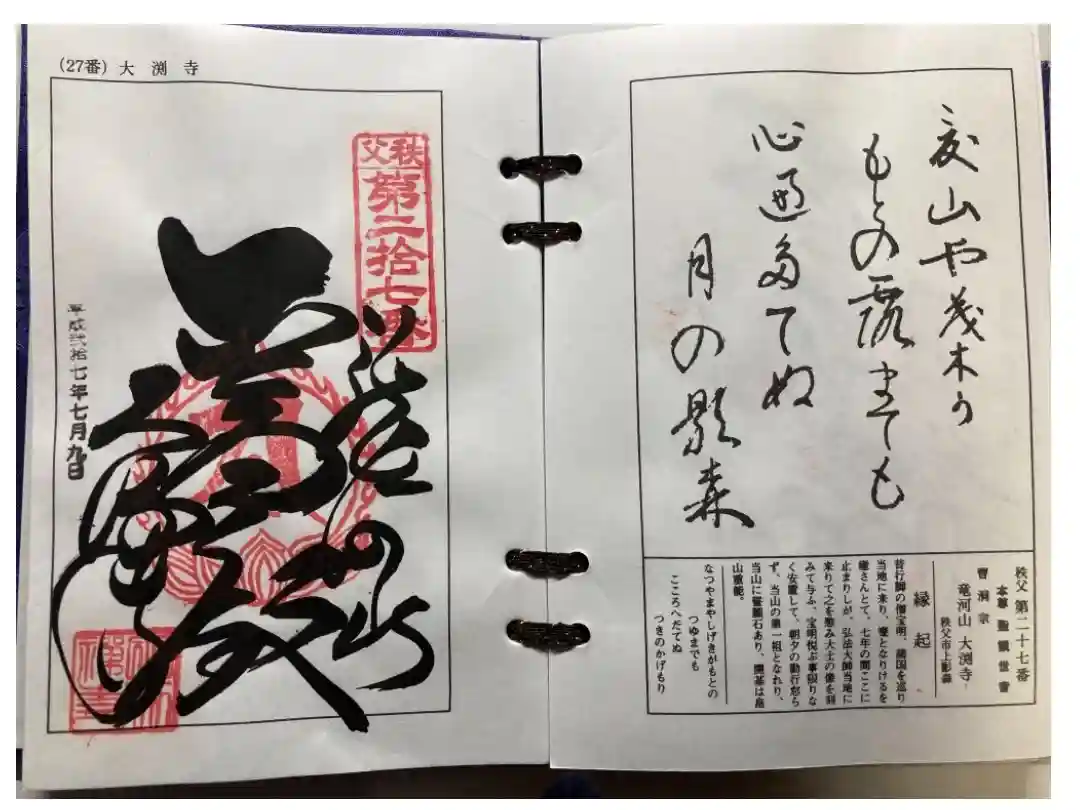 秩父 第二十七番
本尊 聖観世音
曹洞宗
竜河山 大渕寺
秩父市上影森
夏山や茂木可
もとの露までも
心遍多てぬ
月の影森
縁起
昔行脚の僧宝明、諸国を巡り
当地に来り、となりけるを
さんとて、七年の間ここに
止まりしが、弘法大師当地に
来りて之を愍み大士の像を刻
みて与ふ、宝明悦ぶ事限りな
く安置して、朝夕の勤行怠ら
ず、当山の第一祖となれり、
当山に霊石あり、開基は畠
山重能。
なつやまやしげきがもとの
つゆまでも
こころへだてぬ
つきのかげもり
(27番) 大渕寺
秩父
第二拾七番
平成弐拾七年七月九日